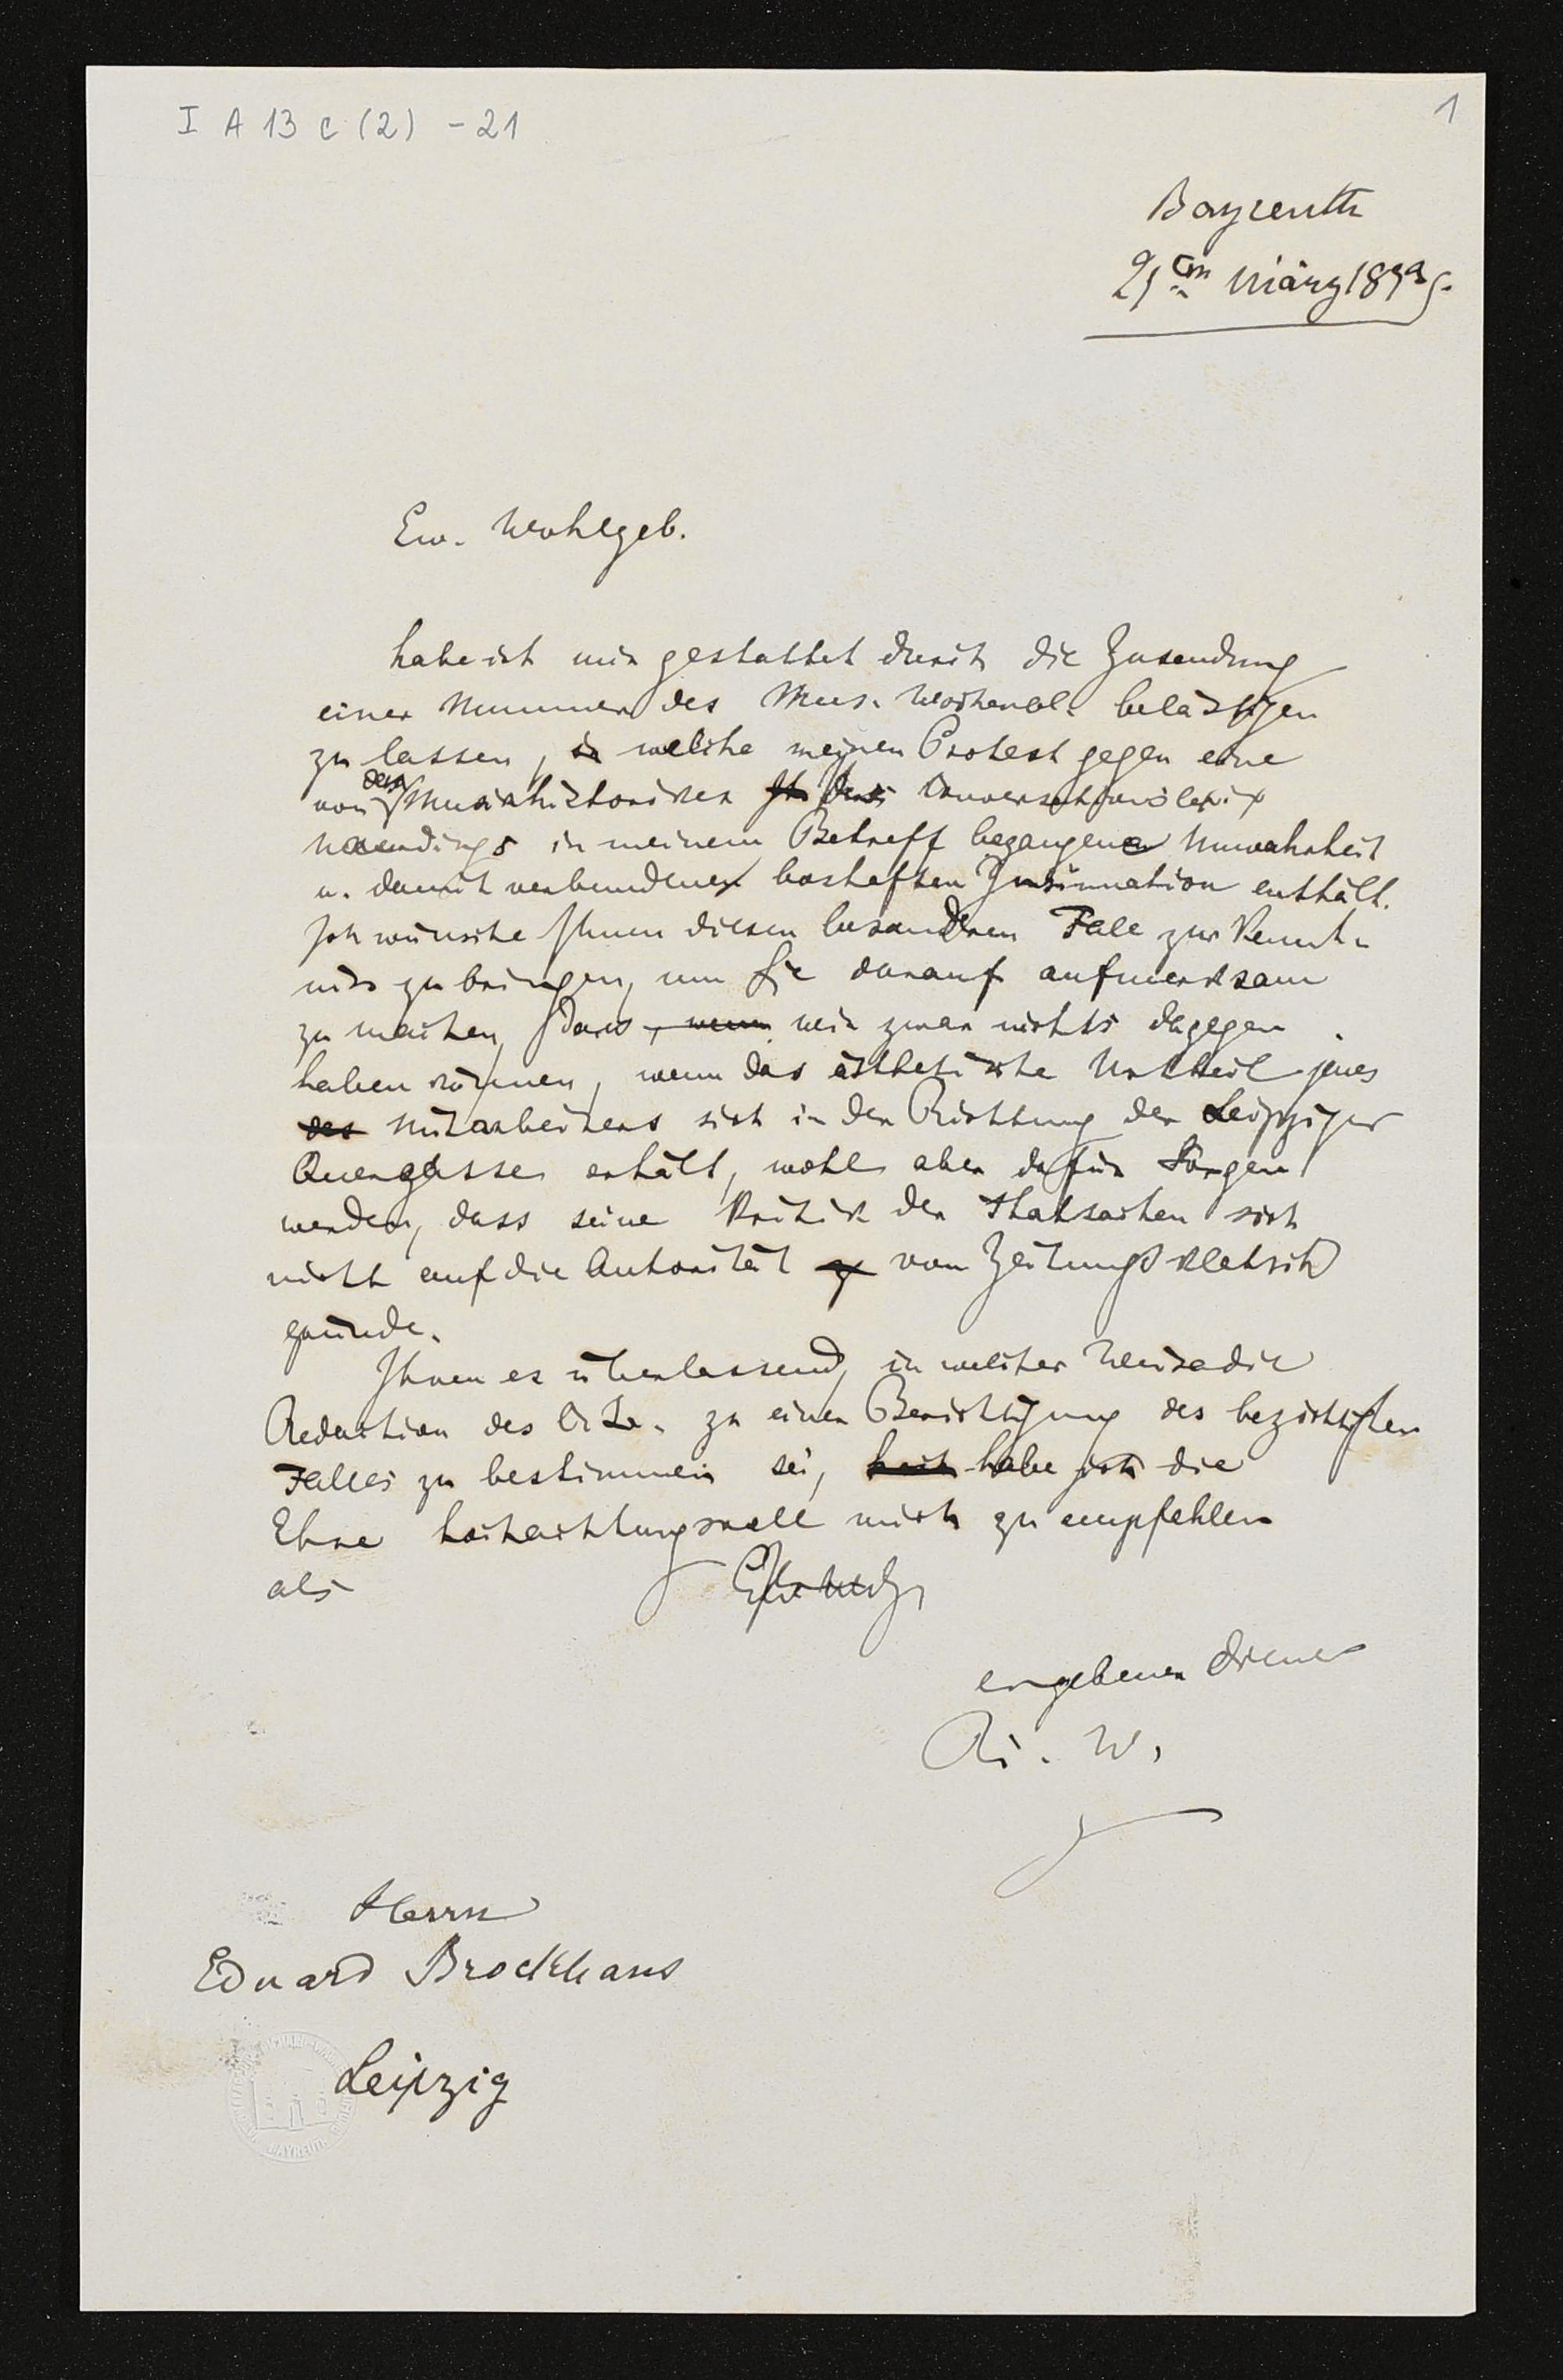 I A 13 c (2) - 21
1
Bayreuth
21ten März 187
Ew. Wohlgeb.
habe ich mir gestattet durch die Zusendung
einer Nummer des Mus. Wochenbl. belästigen
zu lassen, welche meinen Protest gegen eine
von dem Musikhistoriker des Conversationslexix
neuerdings in meinem Betreff begangene Unwahrheit
u. damit verbundenen boshaften Insinuation enthält.
Ich wünsche Ihnen diesen besonderen Fall zur Kennt-
niss zu bringen, um Sie darauf aufmerksam
zu machen, dass, wenn wir zwar nichts dagegen
haben können, wenn das ästhetische Urtheil jenes
des Mitarbeiters sich in der Richtung der Leipziger
Quergasse erhält, wohl aber dafür Sorgen
werden, dass seine Kritik der Thatsachen sich
nicht auf die Autorität von Zeitungsklatsch
gründe.
Ihnen es überlassend, in welcher Weise die
Redaction des zu einer Berichtigung des bezichtigten
Falles zu bestimmen sei, habe ich die
Ehre hochachtungsvoll mich zu empfehlen
als
ergebener Diener
Ri. W.
Herrn
Eduard Brockhaus
Leipzig